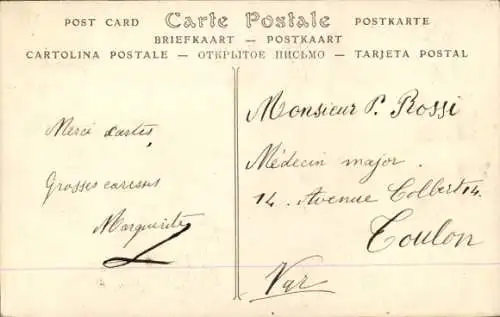 POST CARD Carte Postale POSTKARTE
BRIEFKAART — POSTKAART
CARTOLINA POSTALE — ОТКРЫТОЕ ПИСЬМО — TARJETA POSTAL
Merci cartes
Grosses caresses
Marguerite
Monsieur P. Rossi
Médecin major.
14. Avenue Colbert 14.
Toulon
Var